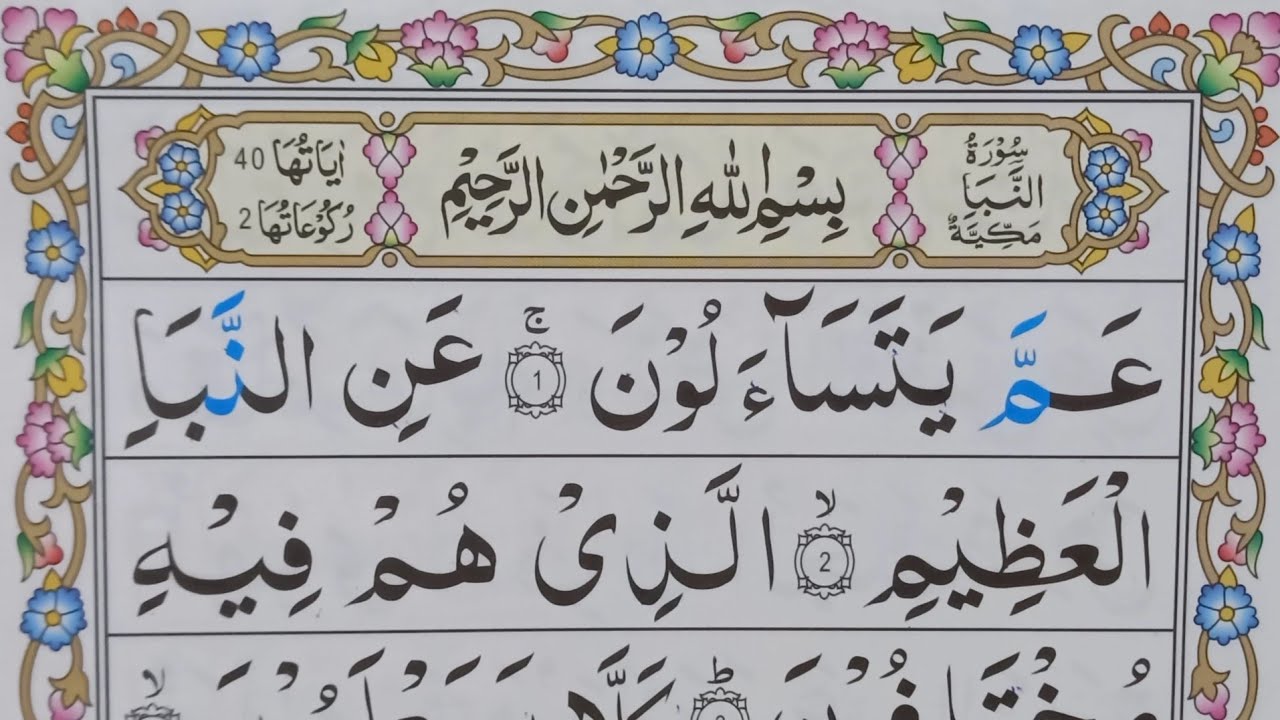 سُوْرَةُ النَّبَإِ مَكِّيَّةٌ
بِسْمِ اللّٰهِ الرَّحْمٰنِ الرَّحِيْمِ
اٰيَاتُهَا 40
رُكُوْعَاتُهَا 2
عَمَّ يَتَسَآءَلُوْنَ ۚ 1 عَنِ النَّبَاِ
الْعَظِيْمِ ۙ 2 الَّذِىْ هُمْ فِيْهِ
مُخْتَلِفُوْنَ ؕ 3 كَلَّا سَيَعْلَمُوْنَ ۙ